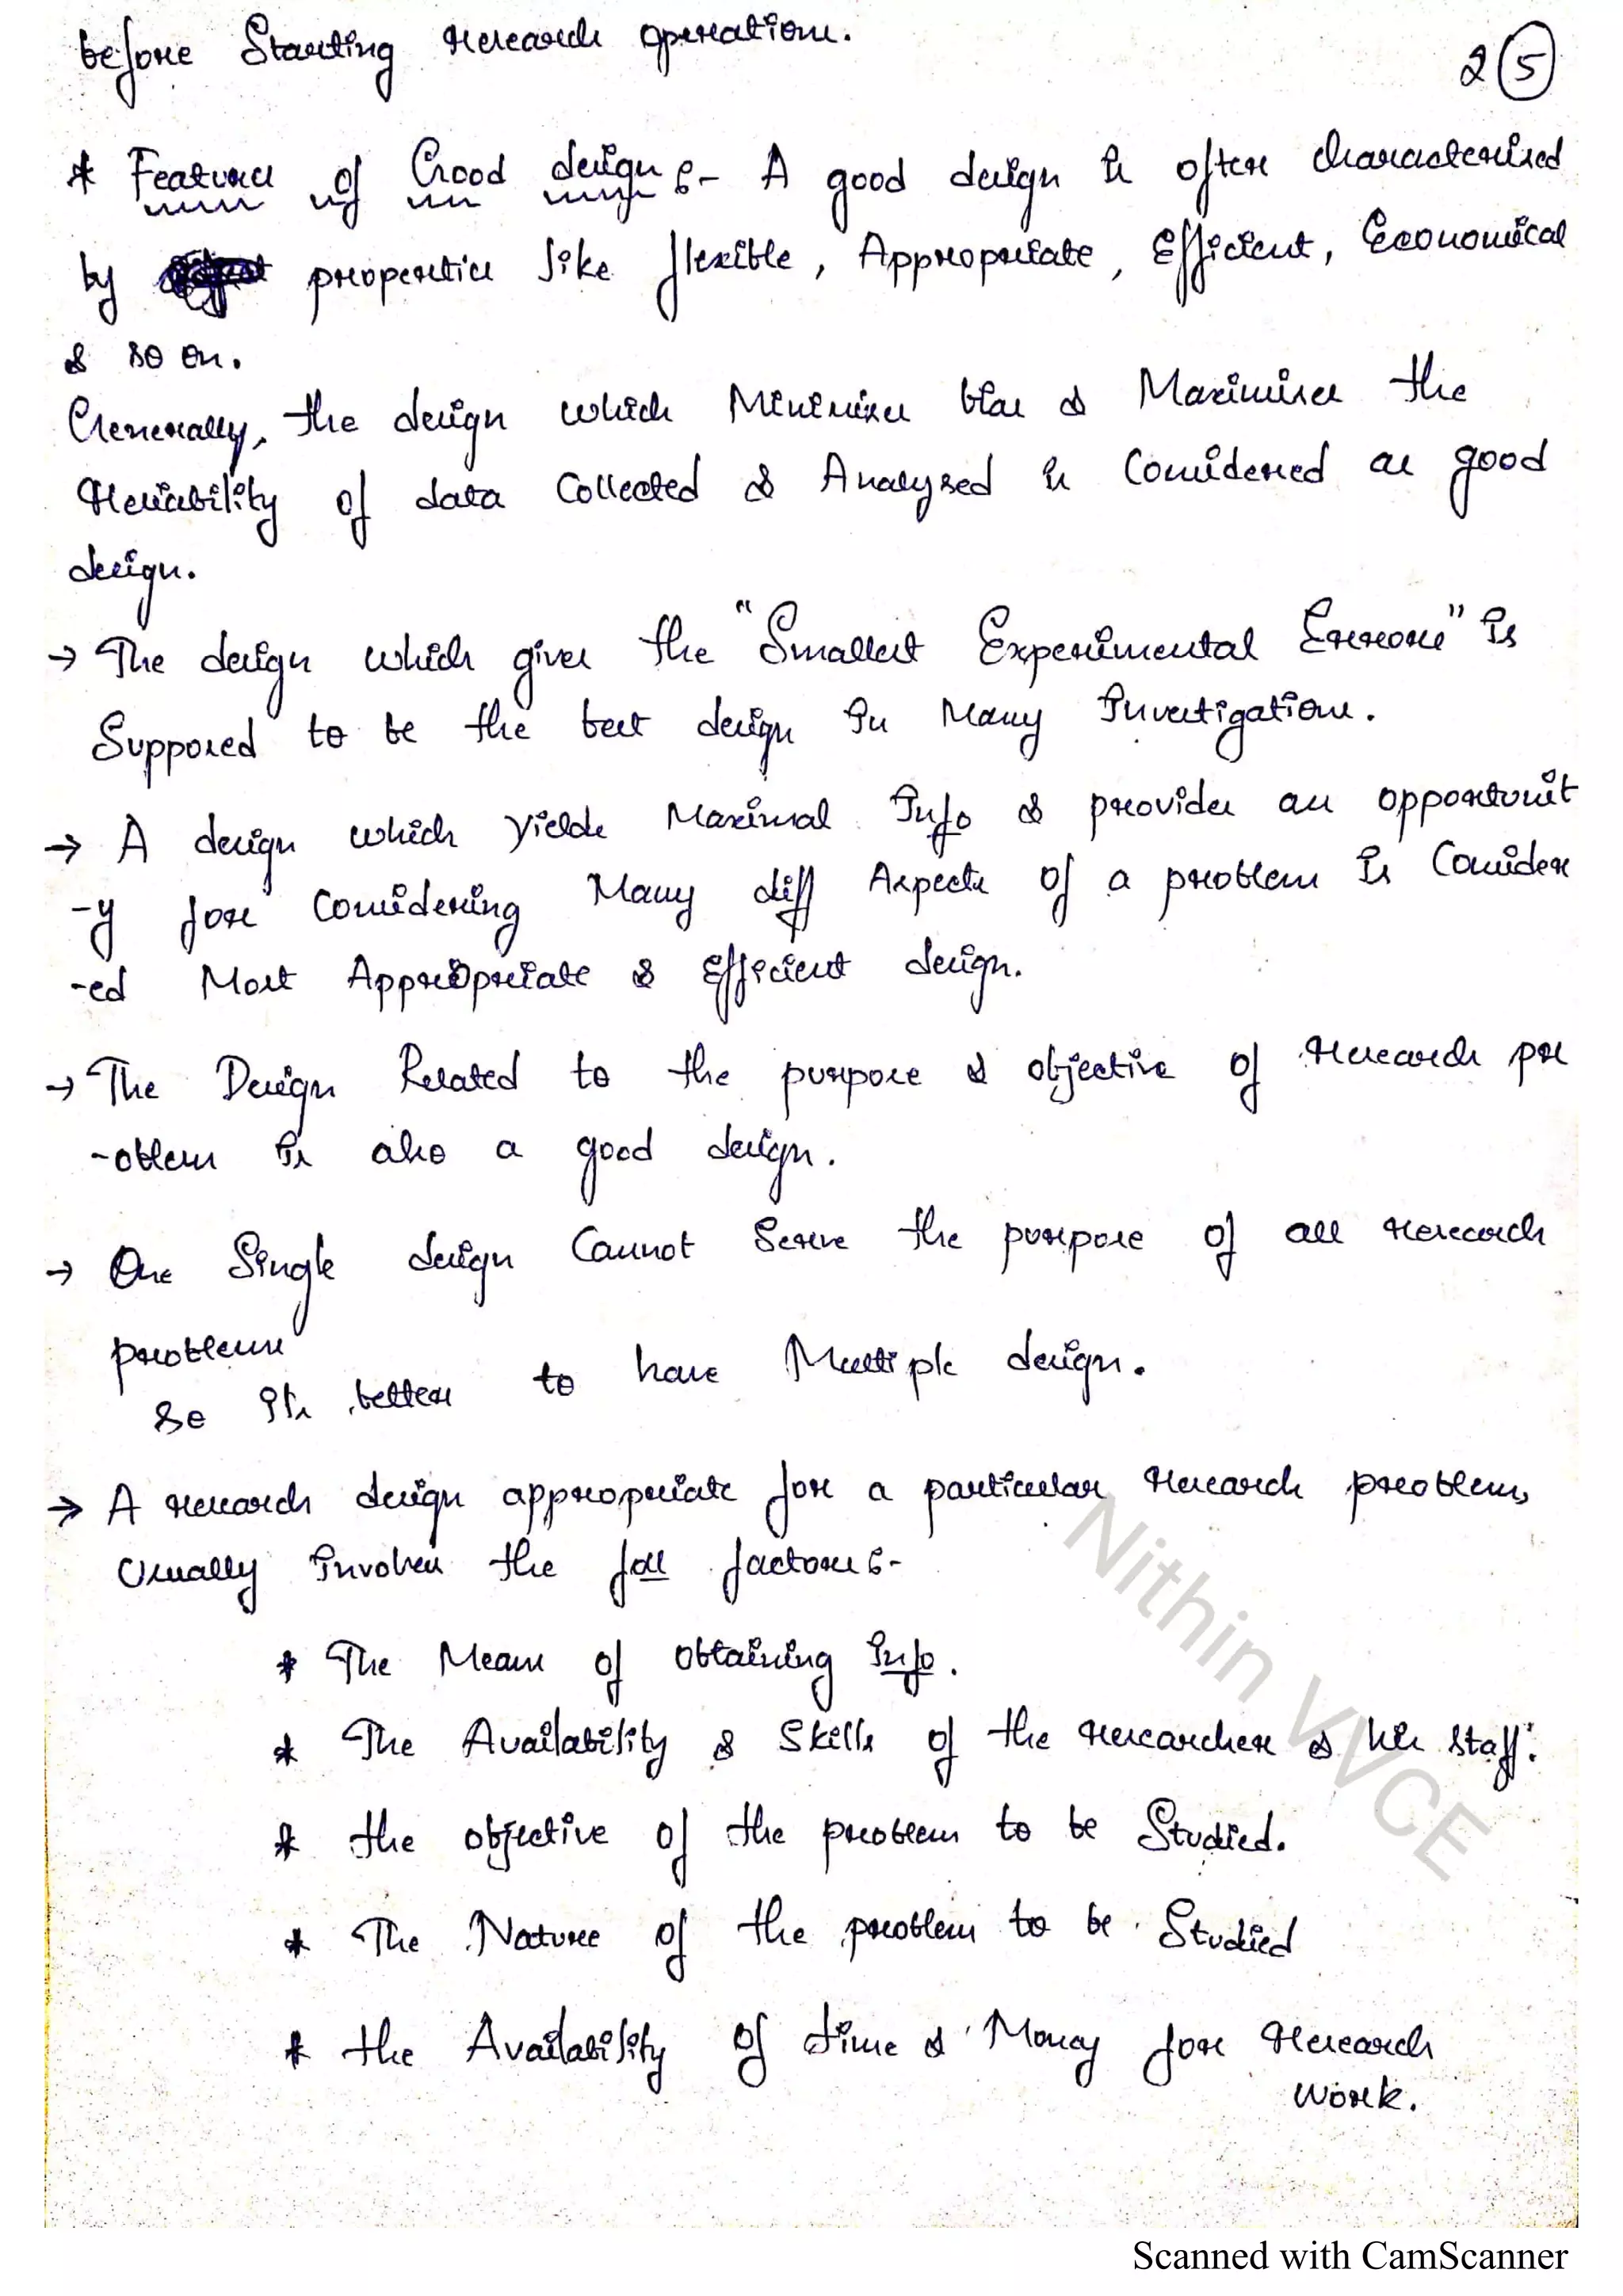 before Starting research operations.
2 5
* Features of Good design :- A good design is often characterised
by properties like flexible, Appropriate, Efficient, Economical
& so on.
Generally, the design which Minimizes bias & Maximises the
reliability of data Collected & Analysed is Considered as good
design.
→ The design which gives the "Smallest Experimental Errors" is
Supposed to be the best design in Many Investigations.
→ A design which yields Maximal Info & provides an opportunit
-y for Considering Many diff Aspects of a problem is Consider
-ed Most Appropriate & Efficient design.
→ The Design Related to the purpose & objective of research pr
-oblem is also a good design.
→ One Single design Cannot Serve the purpose of all research
problems
So its better to have Multiple design.
→ A research design appropriate for a particular research problem,
Usually involves the foll factors :-
* The Means of obtaining Info.
* The Availability & Skills of the researcher & his staff.
* the objective of the problem to be Studied.
* The Nature of the problem to be Studied
* the Availability of time & Money for research
work.
Nithin VVCE
Scanned with CamScanner